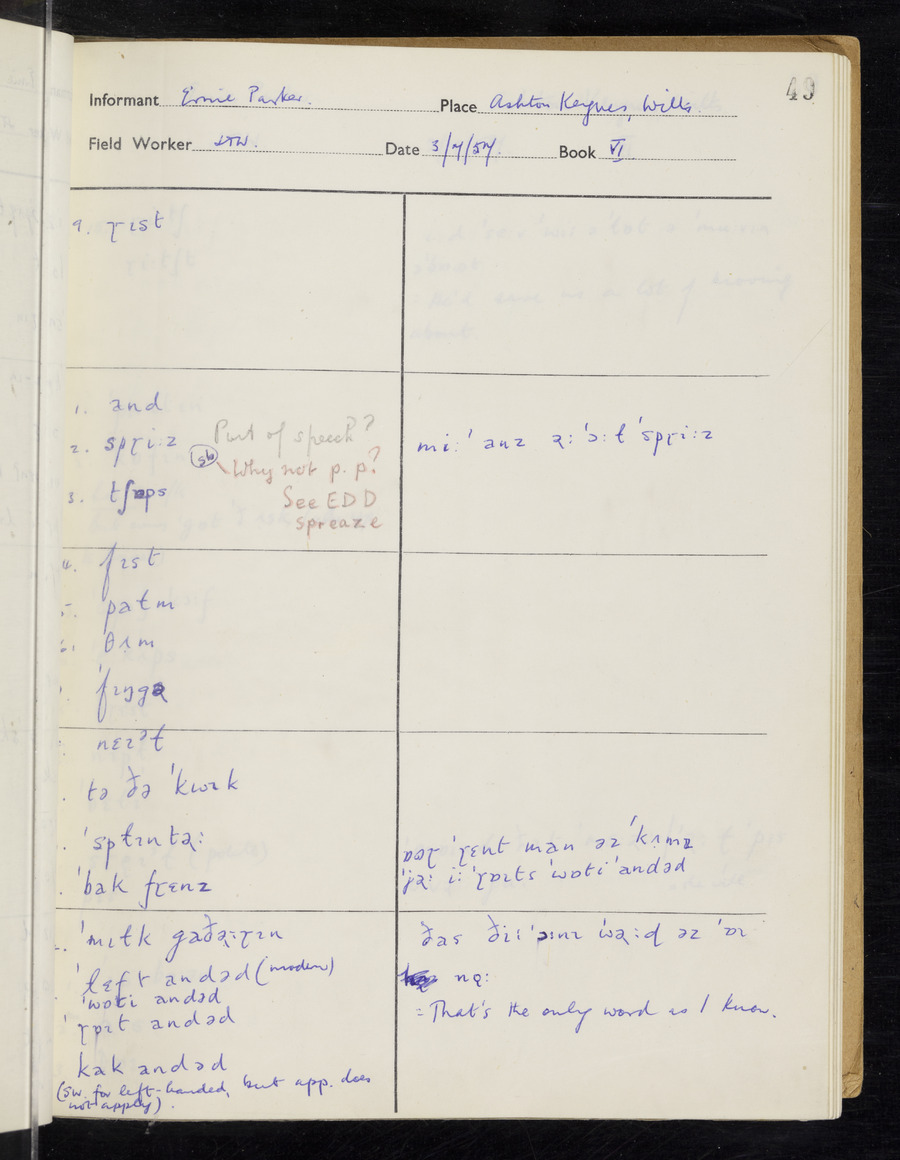 49
Informant Ernie Parker. Place Ashton Keynes, Wilts.
Field Worker Date 3/7/57. Book VI
9. ɽɪst
1. and
2. spɽiːz
Part of speech?
Why not p. p?
3. tʃɒps
See EDD
spreaze
miː ˈanz əː ˈɔːɫ ˈspɽiːz
4. fɪst
patm
θʌm
ˈfɪŋgə
nɛɪət
tə ðə ˈkwɪk
ˈspɫɪntəː
ˈbak fɽɛnz
ˈɽɛnt man əz ˈkʌmz
iː ˈɽɒɪts ˈwɒti ˈandəd
ˈmɪɫk gaðəːɽɪn
ˈlɛft andəd (modern)
ˈwɒti andəd
ˈɽɒɪt andəd
kak andəd
(sw. for left-handed, but app. does
not apply).
= That's the only word as I know.